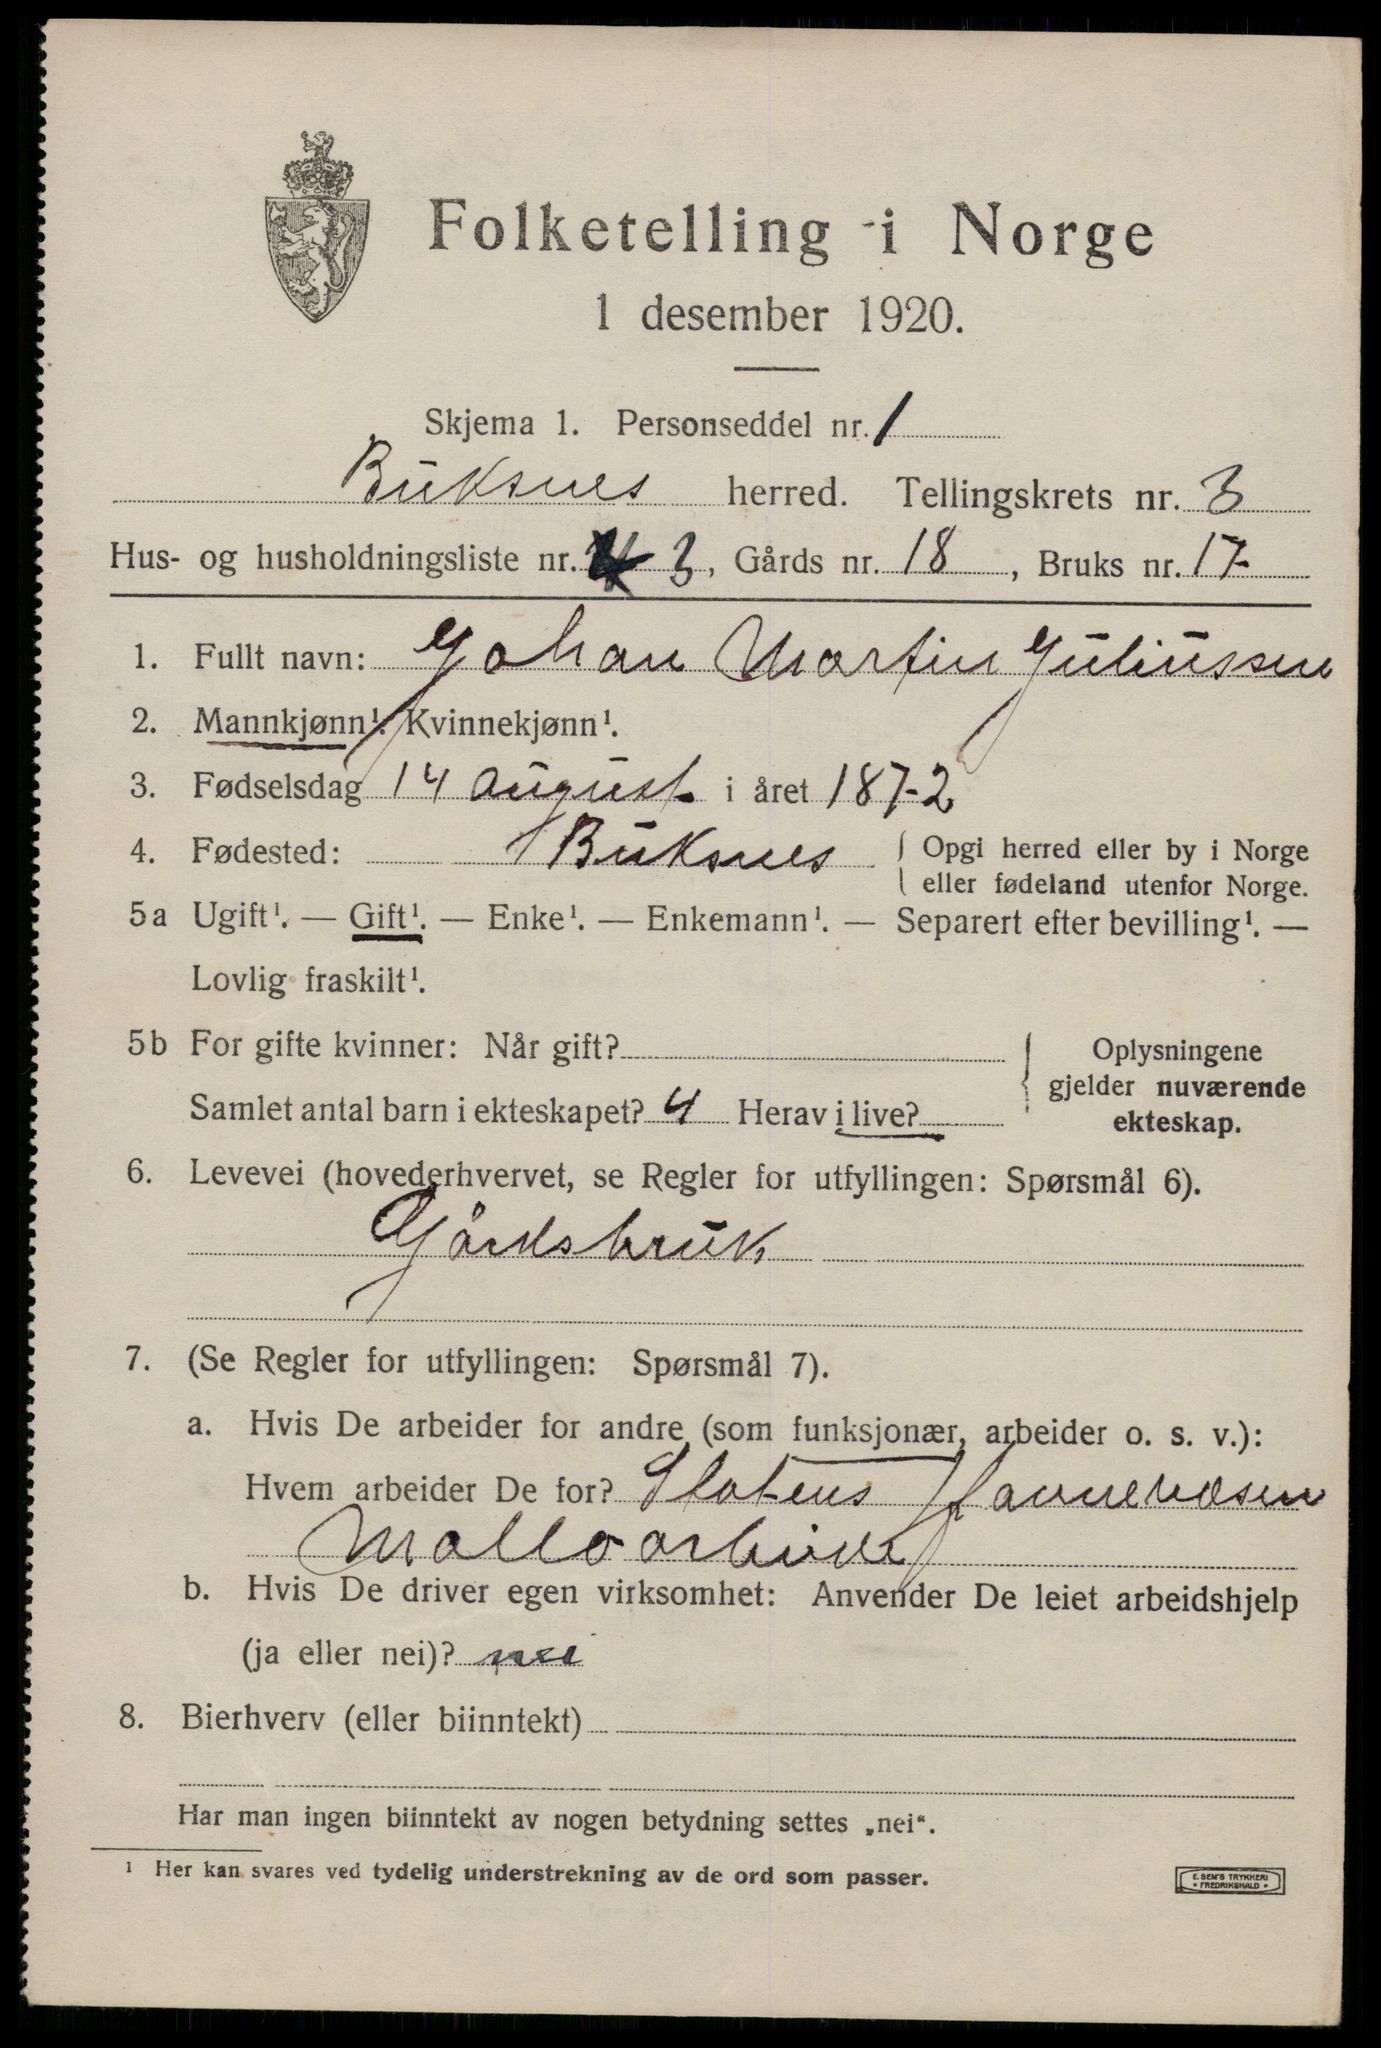 Folketelling i Norge
1 desember 1920.
Skjema 1. Personseddel nr. 1
Buksnes herred. Tellingskrets nr. 3
Hus- og husholdningsliste nr. 3, Gårds nr. 18, Bruks nr. 17
1. Fullt navn: Johan Martin Juliussen
2. Mannkjønn¹. Kvinnekjønn¹.
3. Fødselsdag 14 august i året 1872
4. Fødested: Buksnes { Opgi herred eller by i Norge
eller fødeland utenfor Norge.
5a Ugift¹. — Gift¹. — Enke¹. — Enkemann¹. — Separert efter bevilling¹. —
Lovlig fraskilt¹.
5b For gifte kvinner: Når gift?
Samlet antal barn i ekteskapet? 4 Herav i live?
Oplysningene
gjelder nuværende
ekteskap.
6. Levevei (hovederhvervet, se Regler for utfyllingen: Spørsmål 6).
Gårdsbruk
7. (Se Regler for utfyllingen: Spørsmål 7).
a. Hvis De arbeider for andre (som funksjonær, arbeider o. s. v.):
Hvem arbeider De for? Statens Havnevæsen
Molloarbeide
b. Hvis De driver egen virksomhet: Anvender De leiet arbeidshjelp
(ja eller nei)? nei
8. Bierhverv (eller biinntekt)
Har man ingen biinntekt av nogen betydning settes „nei“.
¹ Her kan svares ved tydelig understrekning av de ord som passer.
E. SEM'S TRYKKERI
* FREDRIKSHALD *